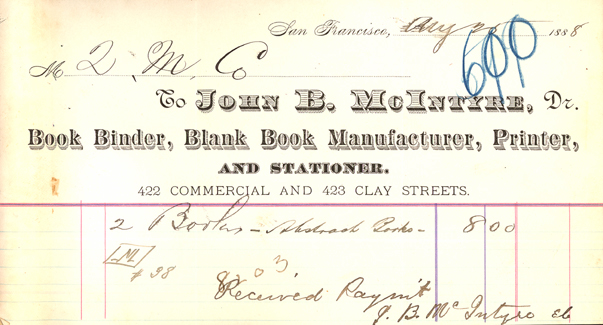 San Francisco, Aug 25 1888
690
M 2. M. Co
To John B. McIntyre, Dr.
Book Binder, Blank Book Manufacturer, Printer,
AND STATIONER.
422 COMMERCIAL AND 423 CLAY STREETS.
2 Books - Abstract Books - 8 00
# 98
Received Paymt
J. B. McIntyre